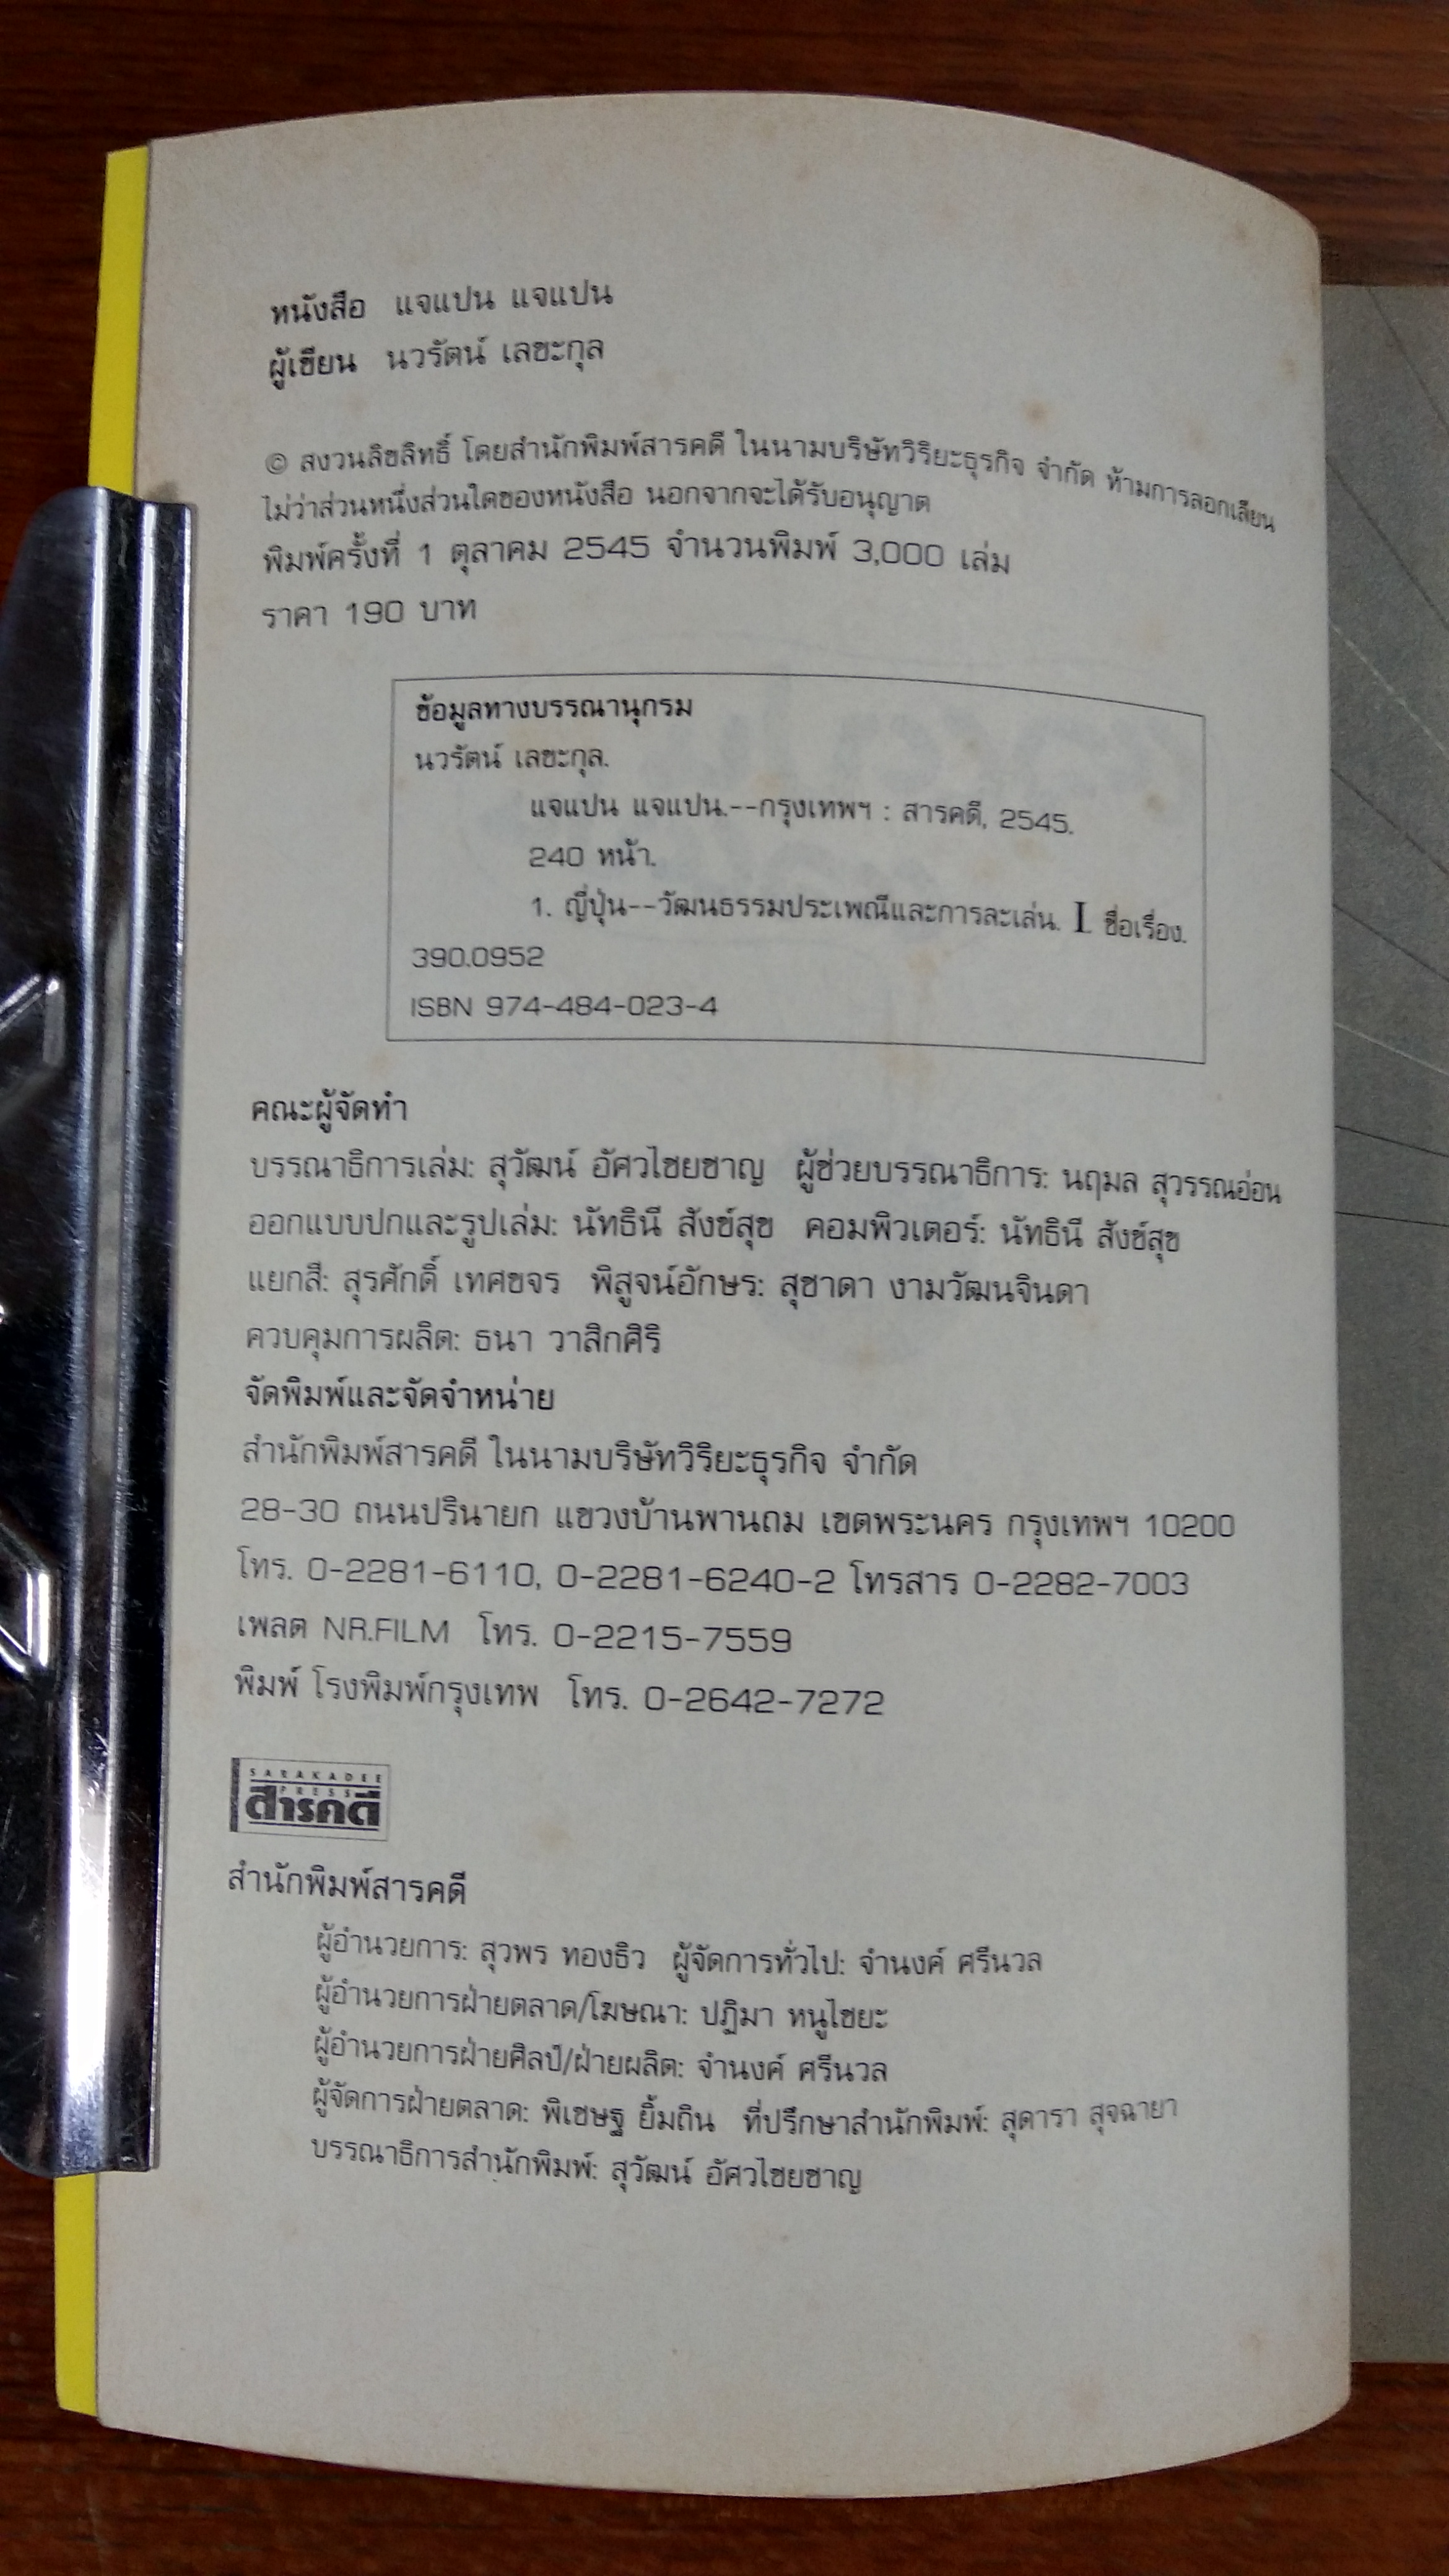 หนังสือ แจแปน แจแปน
ผู้เขียน นวรัตน์ เลขะกุล
© สงวนลิขสิทธิ์ โดยสำนักพิมพ์สารคดี ในนามบริษัทวิริยะธุรกิจ จำกัด ห้ามการลอกเลียน
ไม่ว่าส่วนหนึ่งส่วนใดของหนังสือ นอกจากจะได้รับอนุญาต
พิมพ์ครั้งที่ 1 ตุลาคม 2545 จำนวนพิมพ์ 3,000 เล่ม
ราคา 190 บาท
ข้อมูลทางบรรณานุกรม
นวรัตน์ เลขะกุล.
แจแปน แจแปน.--กรุงเทพฯ : สารคดี, 2545.
240 หน้า.
1. ญี่ปุ่น--วัฒนธรรมประเพณีและการละเล่น. I. ชื่อเรื่อง.
390.0952
ISBN 974-484-023-4
คณะผู้จัดทำ
บรรณาธิการเล่ม: สุวัฒน์ อัศวไชยชาญ ผู้ช่วยบรรณาธิการ: นฤมล สุวรรณอ่อน
ออกแบบปกและรูปเล่ม: นัทธินี สังข์สุข คอมพิวเตอร์: นัทธินี สังข์สุข
แยกสี: สุรศักดิ์ เทศขจร พิสูจน์อักษร: สุชาดา งามวัฒนจินดา
ควบคุมการผลิต: ธนา วาสิกศิริ
จัดพิมพ์และจัดจำหน่าย
สำนักพิมพ์สารคดี ในนามบริษัทวิริยะธุรกิจ จำกัด
28-30 ถนนปรินายก แขวงบ้านพานถม เขตพระนคร กรุงเทพฯ 10200
โทร. 0-2281-6110, 0-2281-6240-2 โทรสาร 0-2282-7003
เพลต NR.FILM โทร. 0-2215-7559
พิมพ์ โรงพิมพ์กรุงเทพ โทร. 0-2642-7272
SARAKADEE
PRESS
สารคดี
สำนักพิมพ์สารคดี
ผู้อำนวยการ: สุวพร ทองธิว ผู้จัดการทั่วไป: จำนงค์ ศรีนวล
ผู้อำนวยการฝ่ายตลาด/โฆษณา: ปฏิมา หนูไชยะ
ผู้อำนวยการฝ่ายศิลป์/ฝ่ายผลิต: จำนงค์ ศรีนวล
ผู้จัดการฝ่ายตลาด: พิเชษฐ ยิ้มถิน ที่ปรึกษาสำนักพิมพ์: สุดารา สุจฉายา
บรรณาธิการสำนักพิมพ์: สุวัฒน์ อัศวไชยชาญ